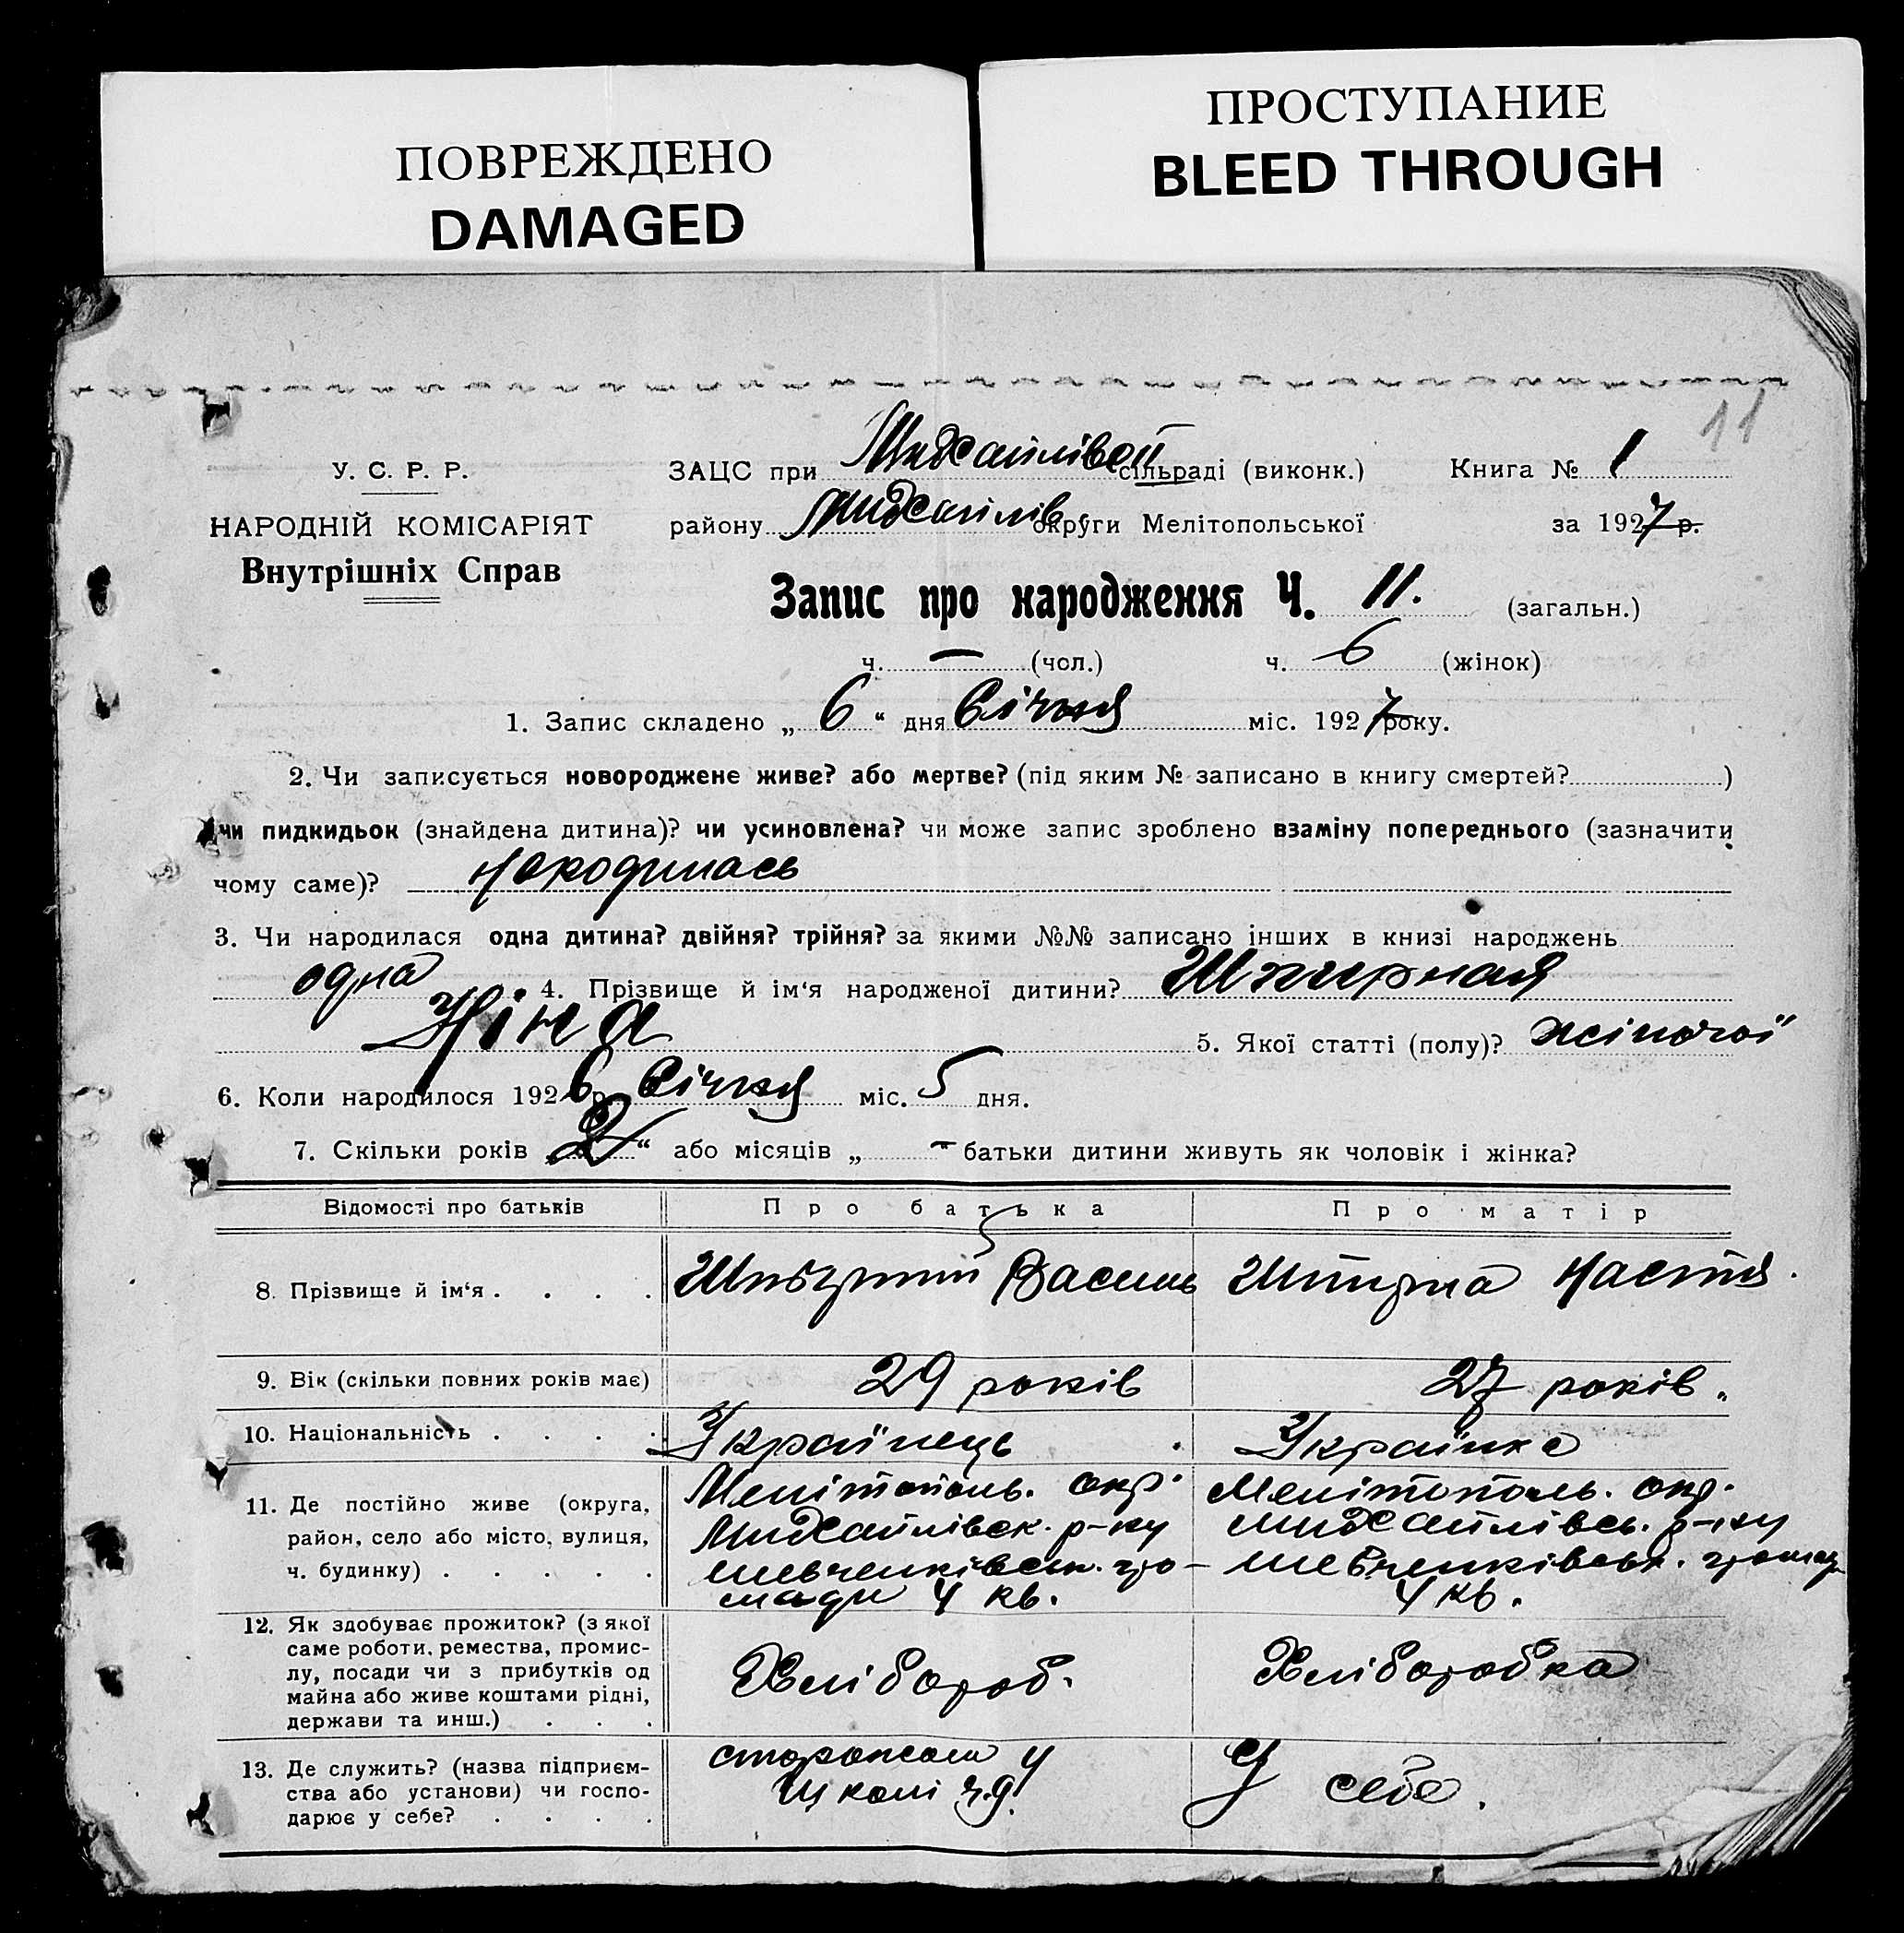 ПОВРЕЖДЕНО
DAMAGED
ПРОСТУПАНИЕ
BLEED THROUGH
11
У. С. Р. Р.
НАРОДНІЙ КОМІСАРІЯТ
Внутрішніх Справ
ЗАЦС при Михайлівсй сільраді (виконк.) Книга № 1
району Михайлів округи Мелітопольської за 1927 р.
Запис про народження Ч. 11. (загальн.)
ч. — (чол.) ч. 6 (жінок)
1. Запис складено „ 6 “ дня Січня міс. 1927 року.
2. Чи записується новороджене живе? або мертве? (під яким № записано в книгу смертей? )
чи пидкидьок (знайдена дитина)? чи усиновлена? чи може запис зроблено взаміну попереднього (зазначити
чому саме)?
3. Чи народилася одна дитина? двійня? трійня? за якими №№ записано інших в книзі народжень
одна 4. Прізвище й ім‘я народженої дитини?
Ніна 5. Якої статті (полу)? жіночої
6. Коли народилося 1926 р. Січня міс. 5 дня.
7. Скільки років „ 2 “ або місяців „ - “ батьки дитини живуть як чоловік і жінка?
Відомості про батьків Про батька Про матір
8. Прізвище й ім‘я . . . . Василь Настя.
9. Вік (скільки повних років має) 29 років 27 років.
10. Національність . . . . Українець Українка
11. Де постійно живе (округа, Мелітополь. окр. Мелітополь. окр.
район, село або місто, вулиця, Михайлівск. р-ну Михайлівсь. р-ну
ч. будинку) . . . . . Шевченківськ. гро- Шевченківськ. громад
мади 4 кв. 4 кв.
12. Як здобуває прожиток? (з якої
саме роботи, ремества, промис-
лу, посади чи з прибутків од Хлібороб. Хліборобка
майна або живе коштами рідні,
держави та инш.) . . .
13. Де служить? (назва підприєм- сторожом у У
ства або установи) чи госпо- Школі себе.
дарює у себе? . . . .